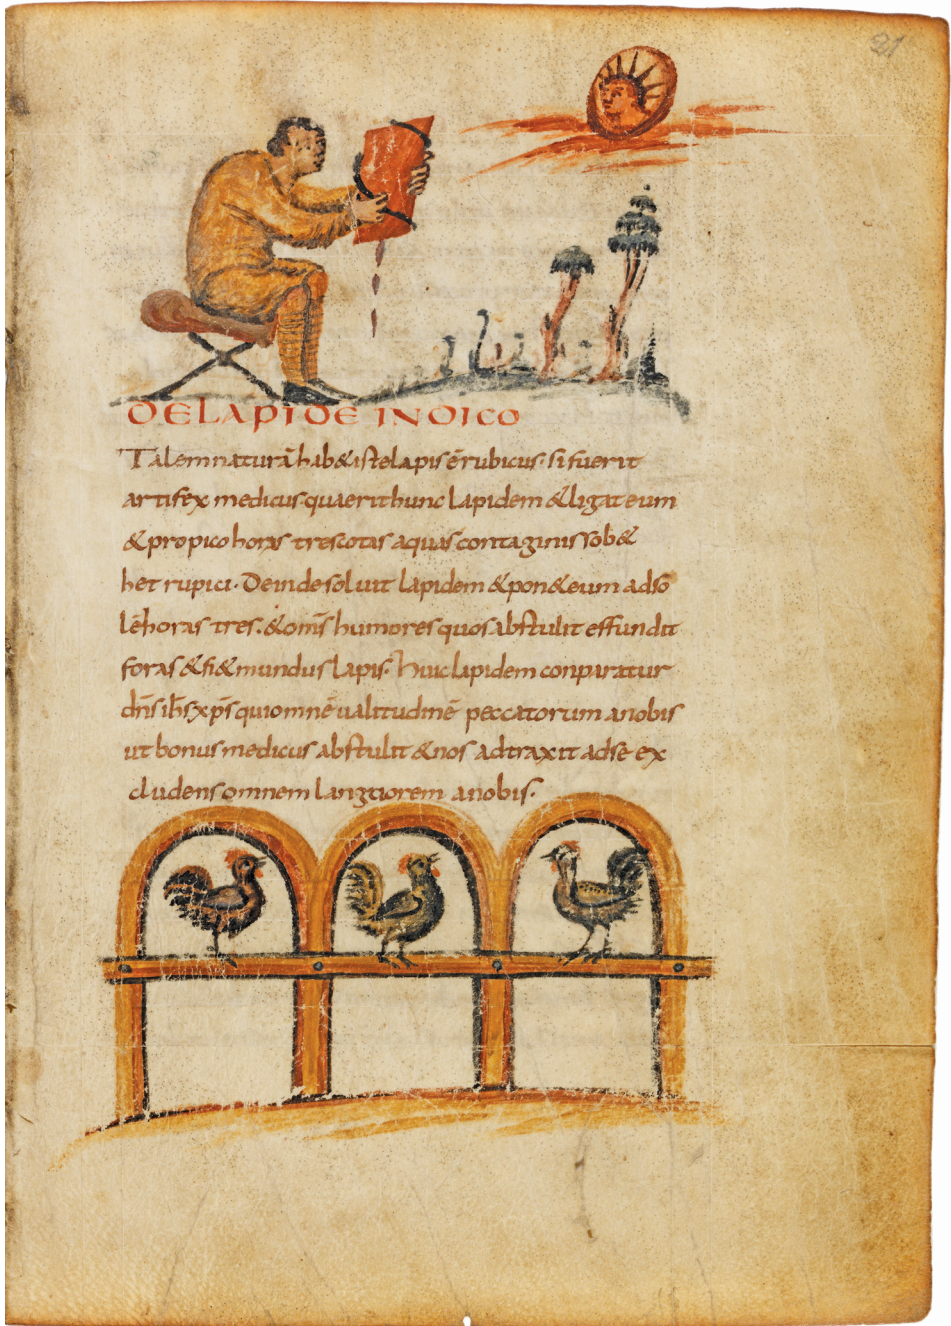 21
DE LAPIDE INDICO
Talem naturā hab& iste lapis ē rubicus· si fuerit
artifex medicus· quaerit hunc lapidem & ligat eum
& propico horas tres totas aquas contaginis sob&
het rupici· Deinde soluit lapidem & pon& eum ad so
lē horas tres· & om̄s humores quos abstulit effundit
foras & fi& mundus lapis· Huic lapidem conparatur
dn̄s ih̄s xp̄s qui omnē ualitudinē peccatorum a nobis
ut bonus medicus abstulit & nos adtraxit ad se ex
cludens omnem langtiorem a nobis·